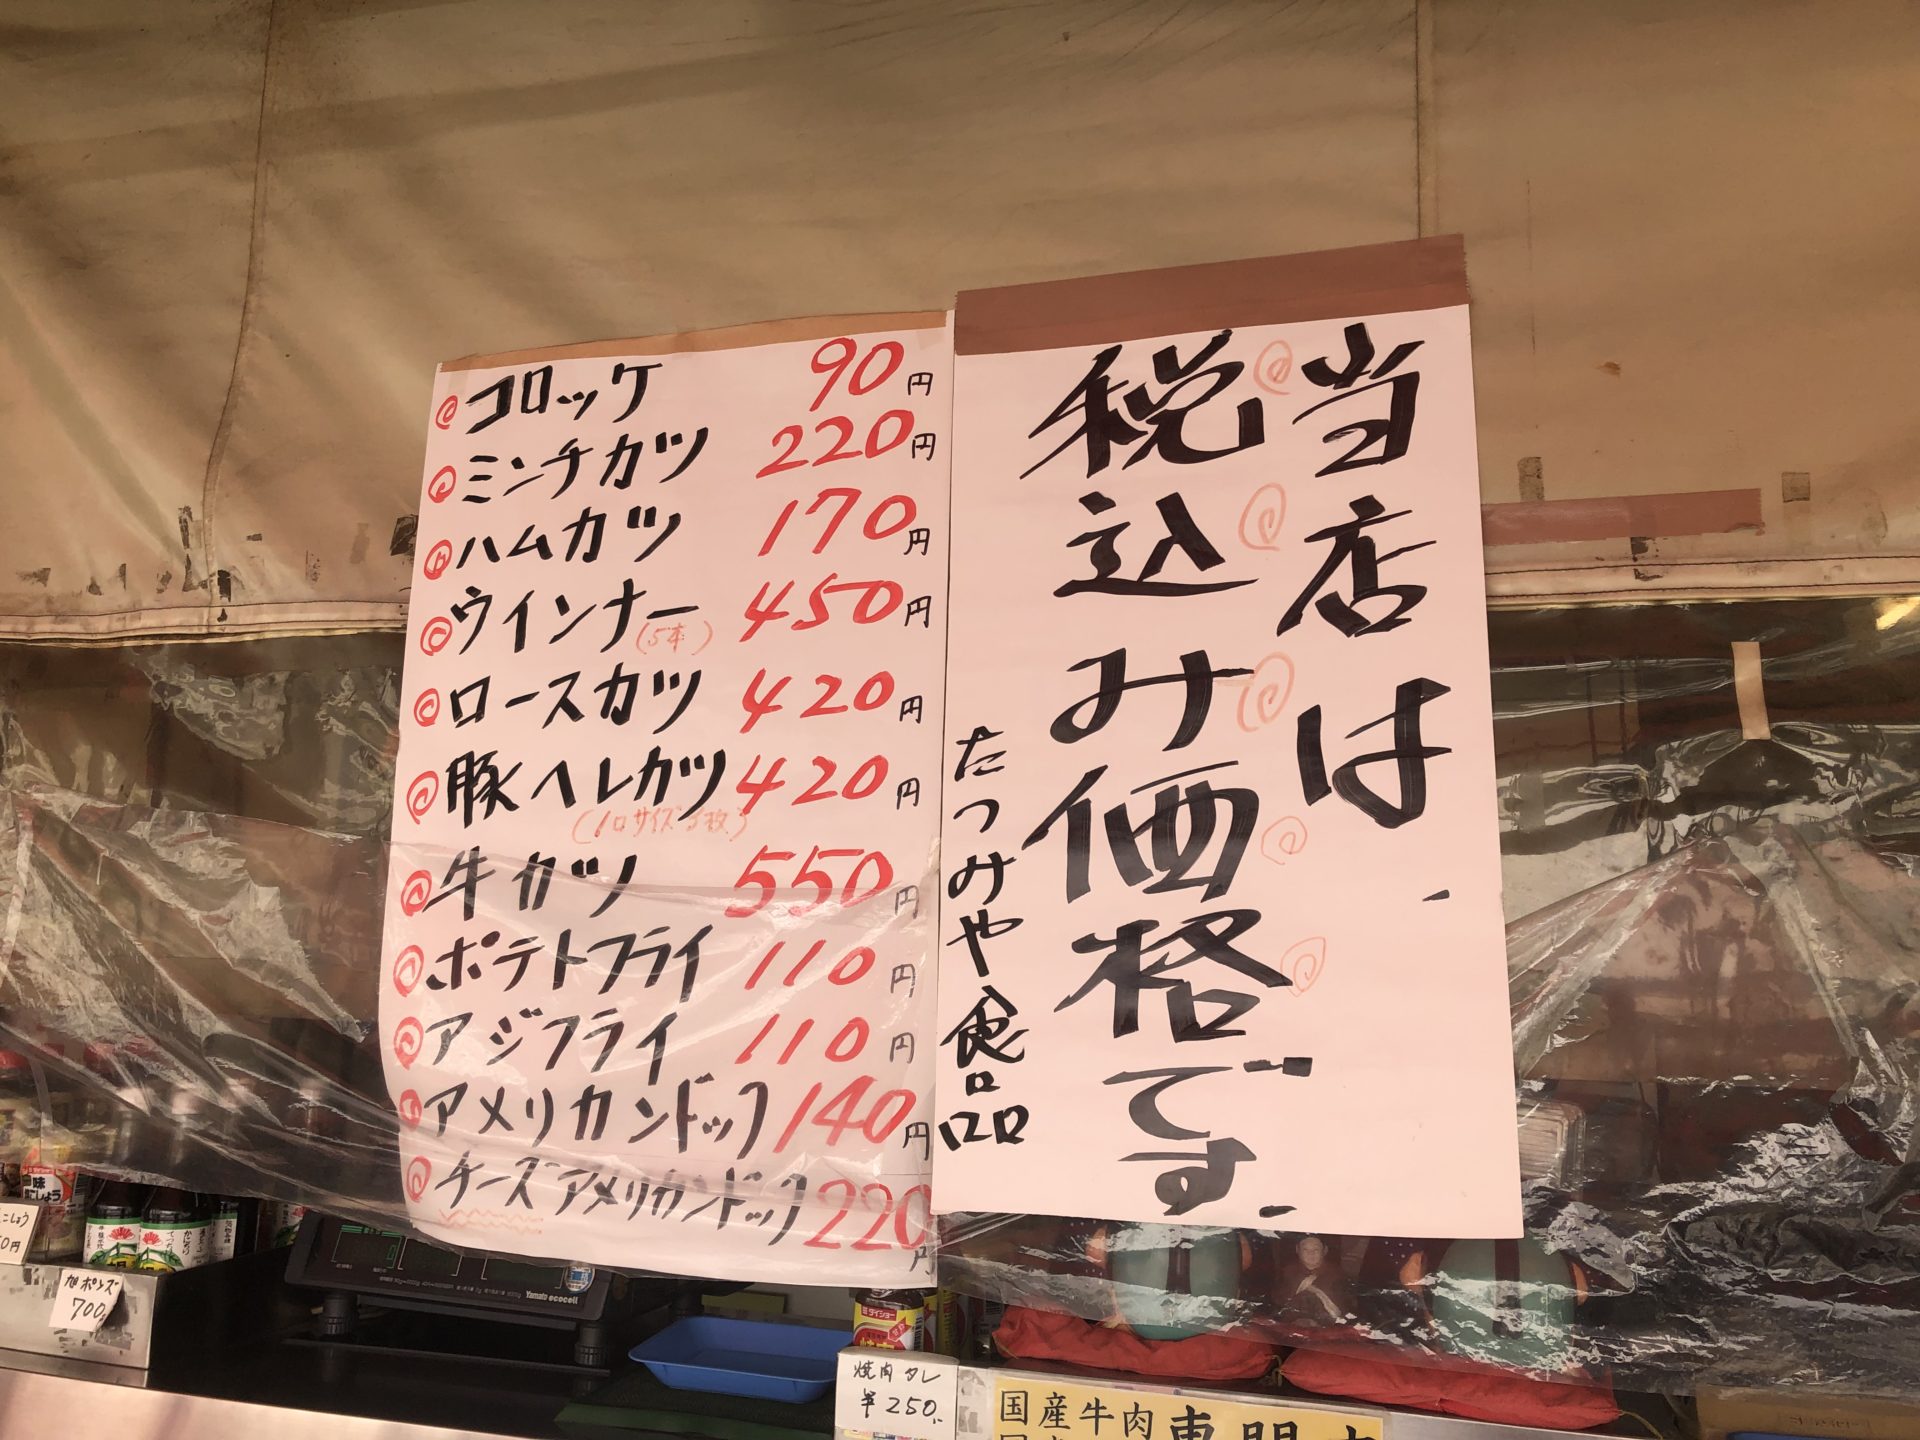 当店は、
税込み価格です。
たつみや食品
コロッケ 90円
ミンチカツ 220円
ハムカツ 170円
ウインナー 450円
(5本)
ロースカツ 420円
豚ヘレカツ 420円
(1口サイズ 3枚)
牛カツ 550円
ポテトフライ 110円
アジフライ 110円
アメリカンドック 140円
チーズアメリカンドック 220円
旭ポンズ
700
Yamato ecocell
ダイショー
焼肉タレ
¥250.-
国産牛肉